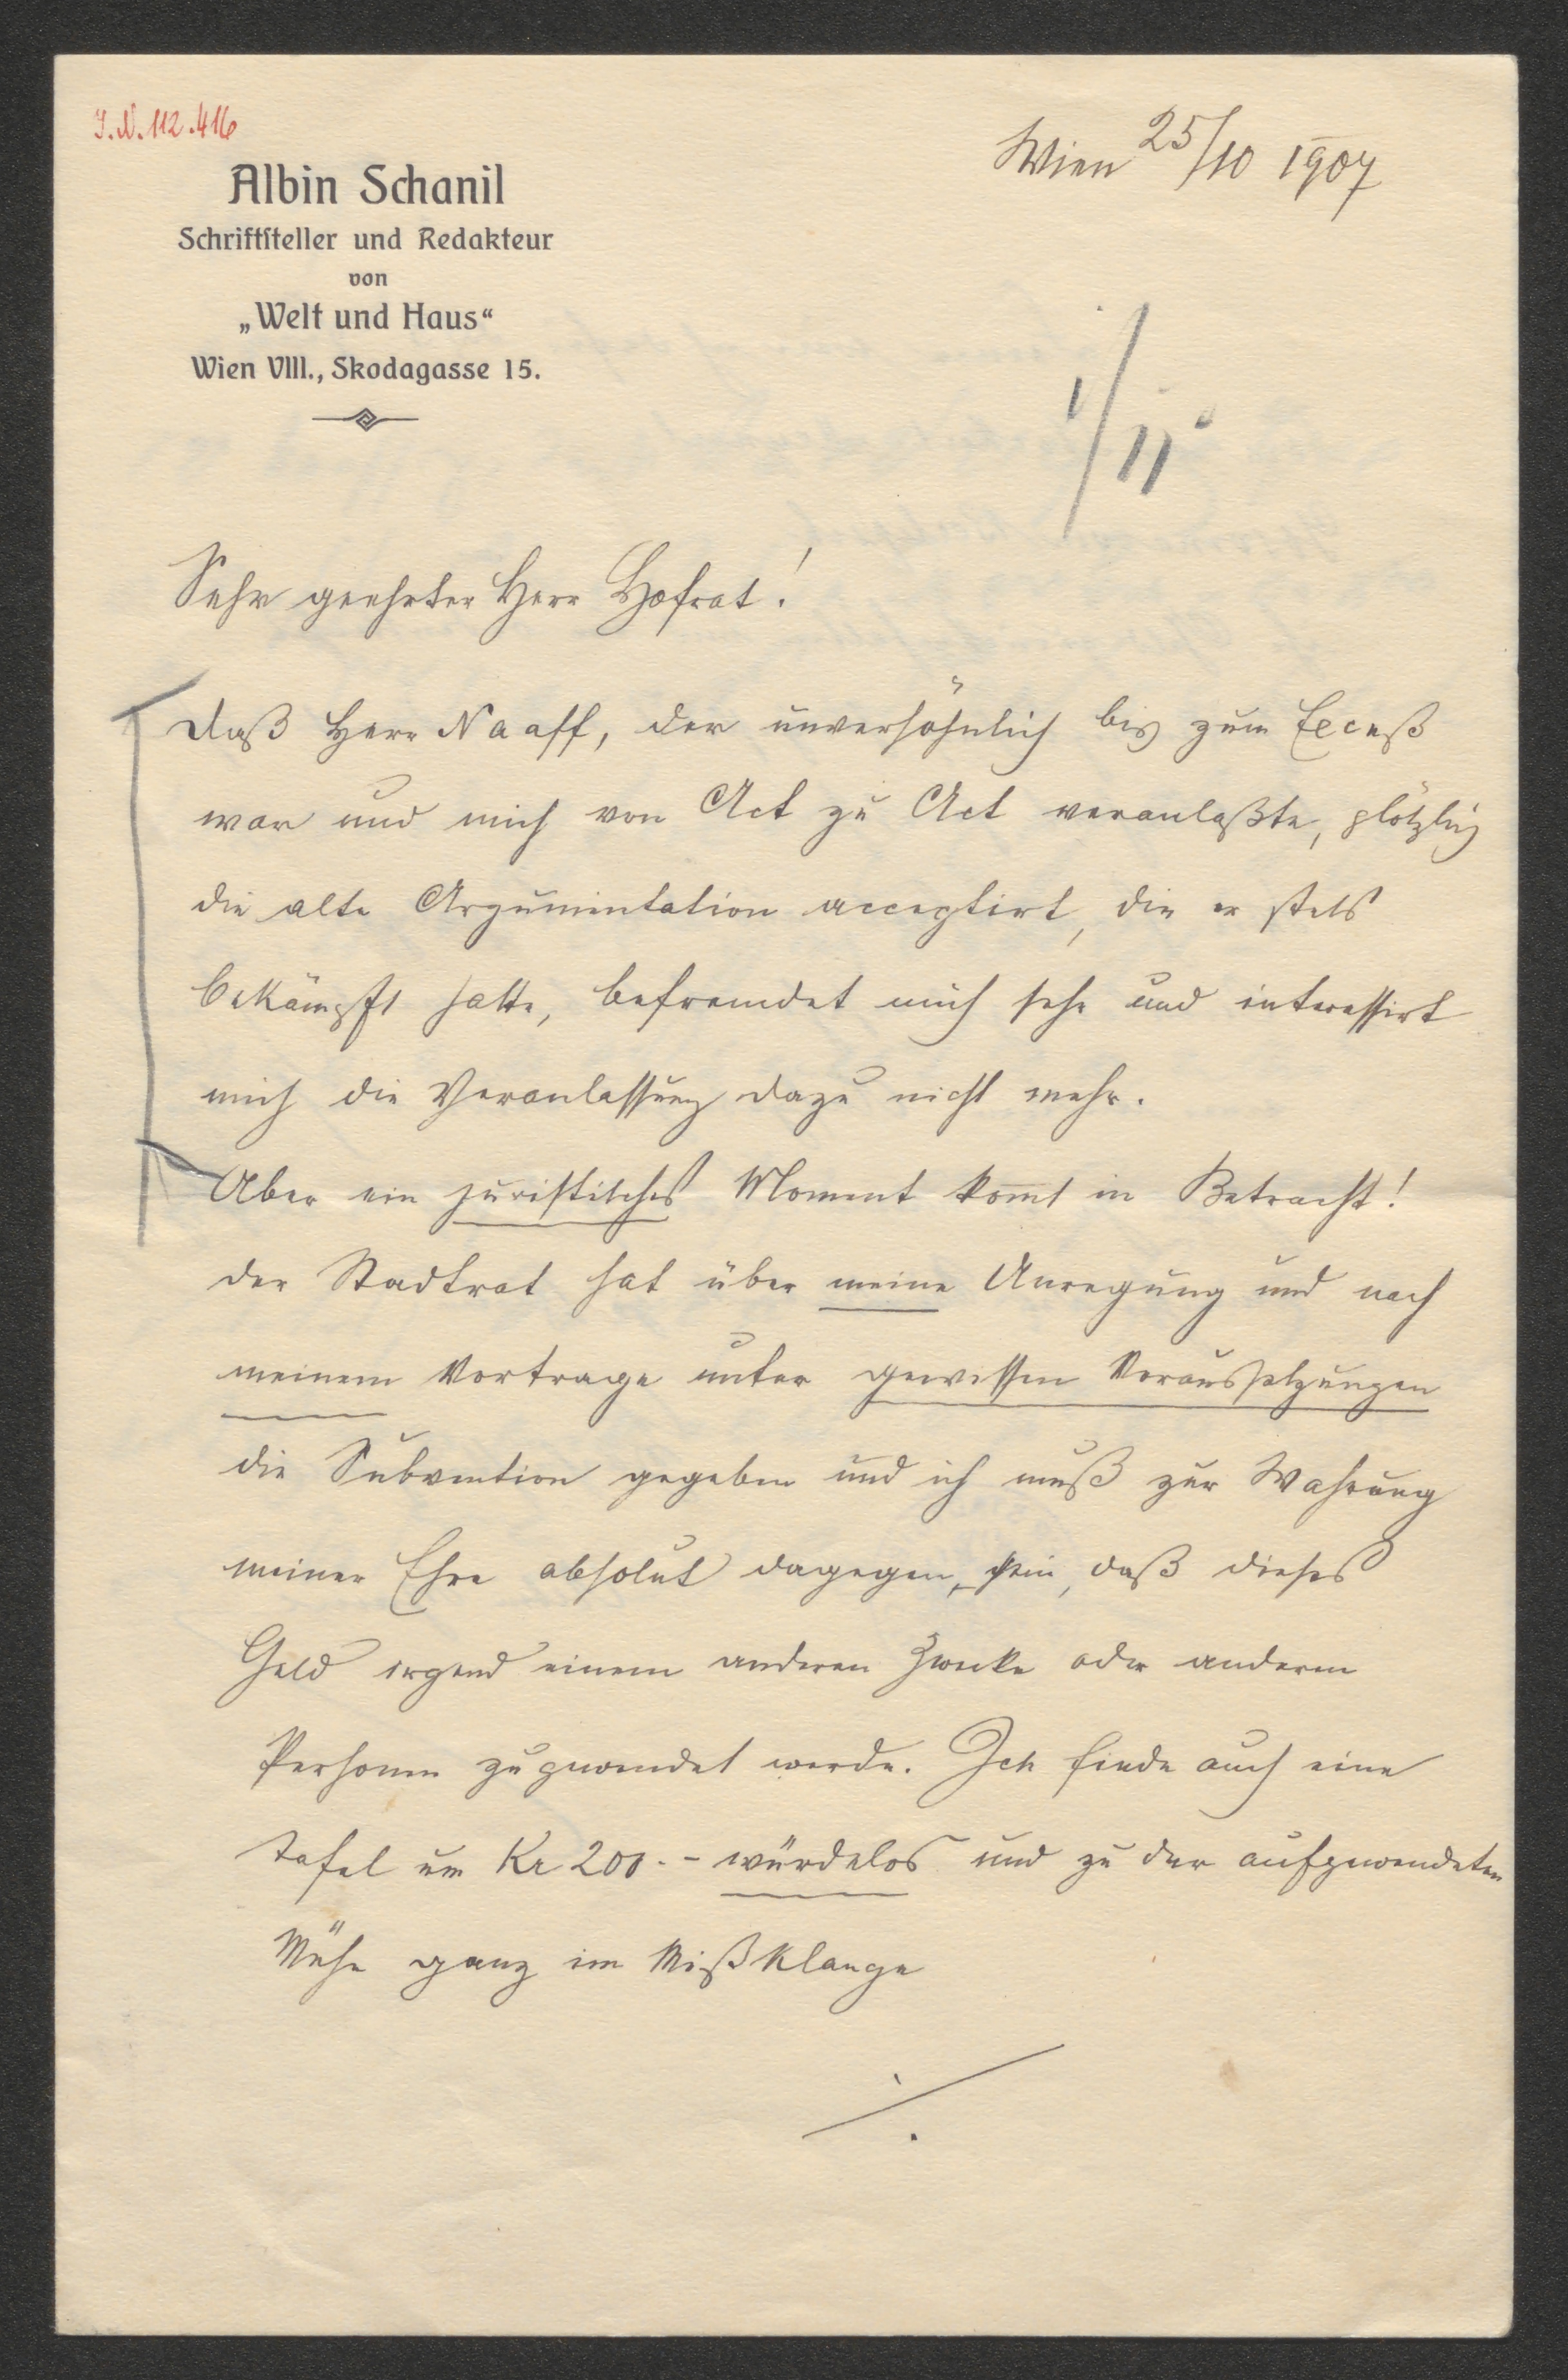 I.N. 112.416
Albin Schanil
Schriftsteller und Redakteur
von
„Welt und Haus“
Wien VIII., Skodagasse 15.
Wien 25/10 1907
1/11
Sehr geehrter Herr Hofrat!
Daß Herr Naaff, der unversöhnlich bis zum Exceß
war und mich von Act zu Act veranlaßte, plötzlich
die alte Argumentation acceptirt, die er stets
bekämpft hatte, befremdet mich sehr und interessirt
mich die Veranlassung dazu nicht mehr.
Aber ein juristisches Moment kom̅t in Betracht!
Der Stadtrat hat über meine Anregung und nach
meinem Vortrage unter gewissen Voraussetzungen
die Subvention gegeben und ich muß zur Wahrung
meiner Ehre absolut dagegen sein, daß dieses
Geld irgend einem anderen Zwecke oder anderen
Personen zugewendet werde. Ich finde auch eine
Tafel um Kr 200.- würdelos und zu der aufgewendeten
Mühe ganz im Mißklange
./.